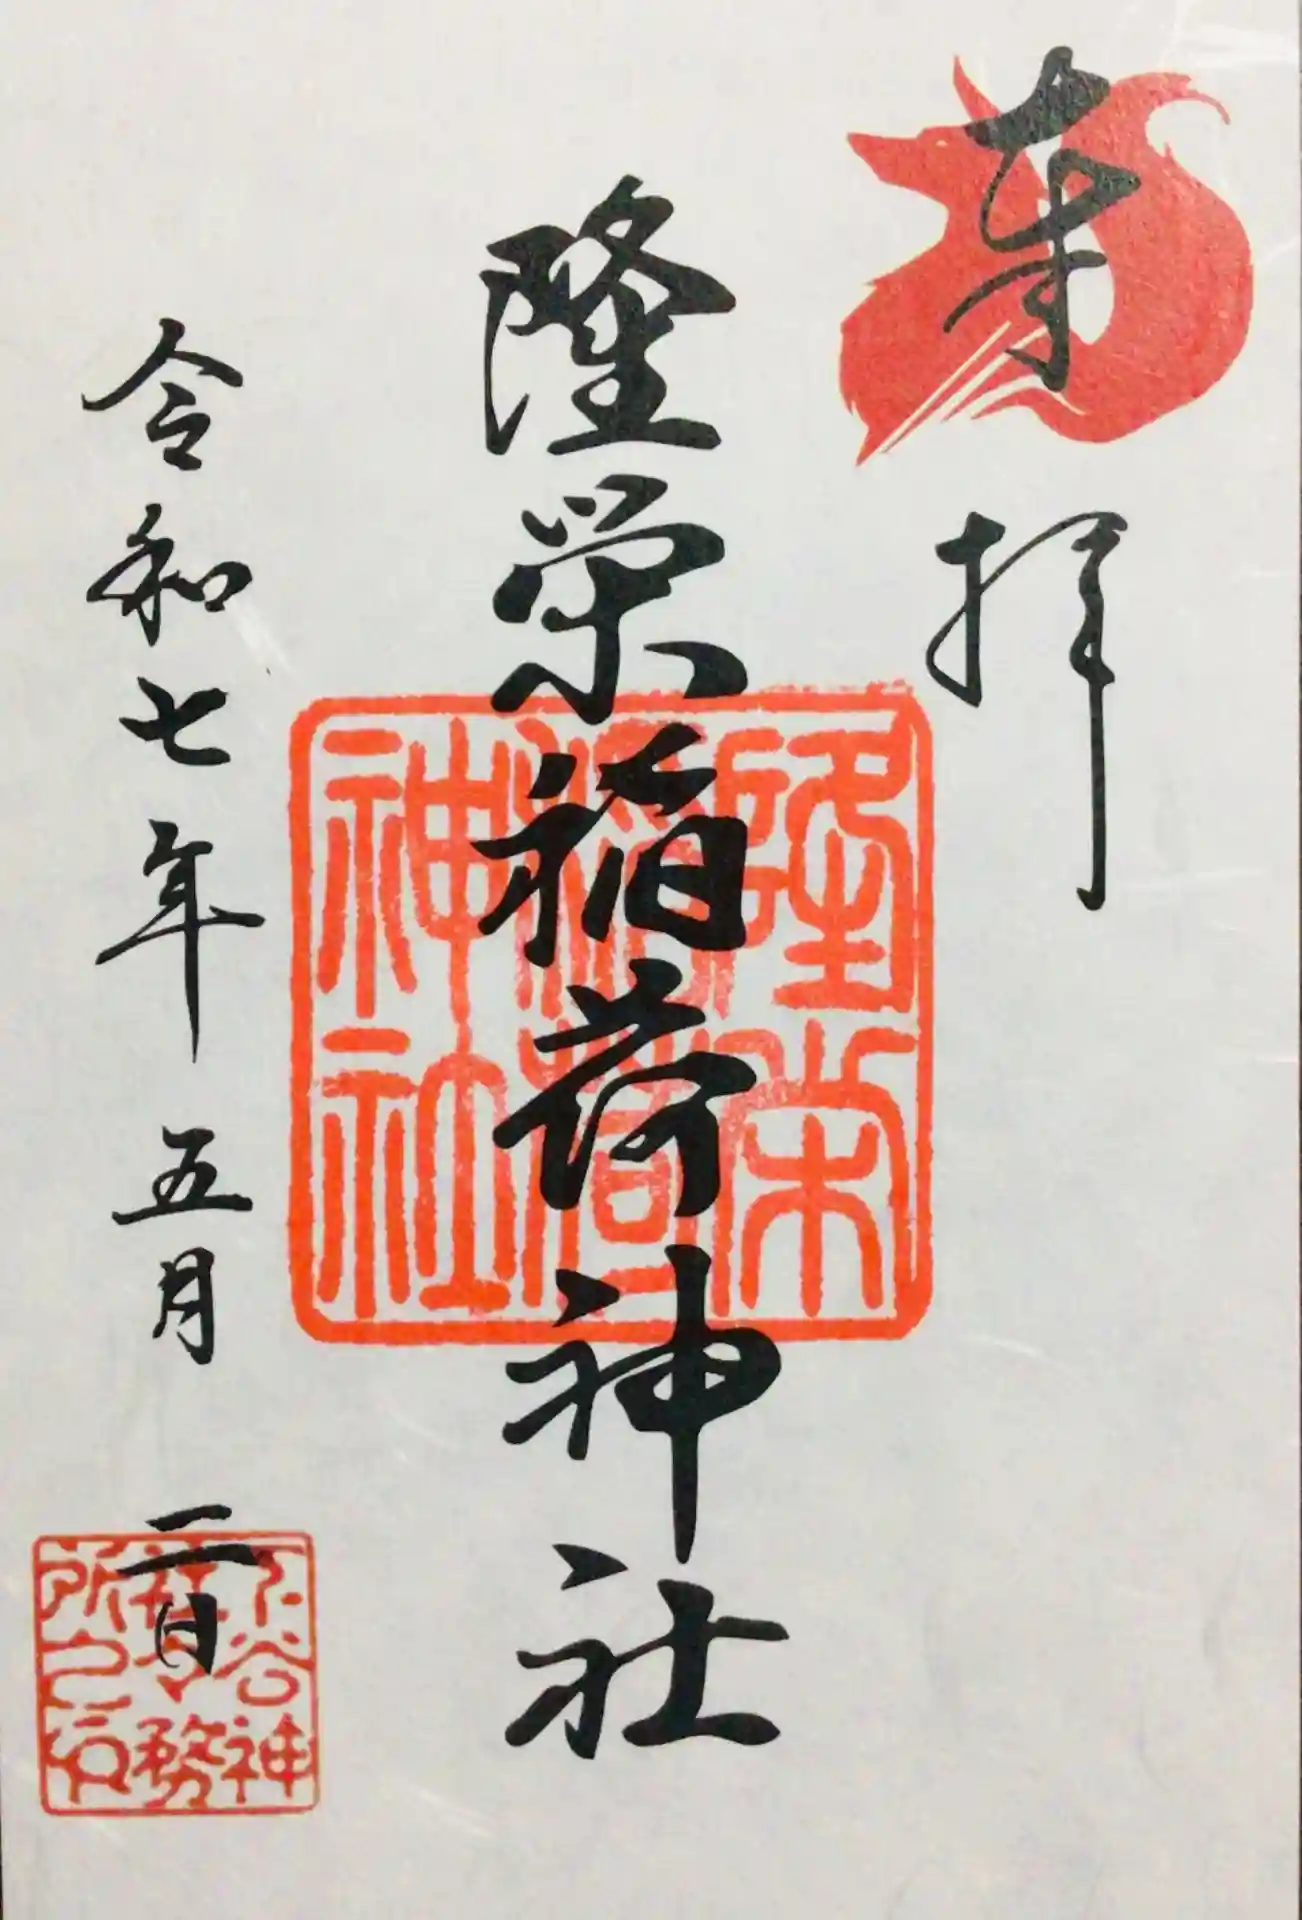 奉拝
隆栄稲荷神社
隆栄
稲荷
神社
令和七年五月二日
下谷神
社務
所之